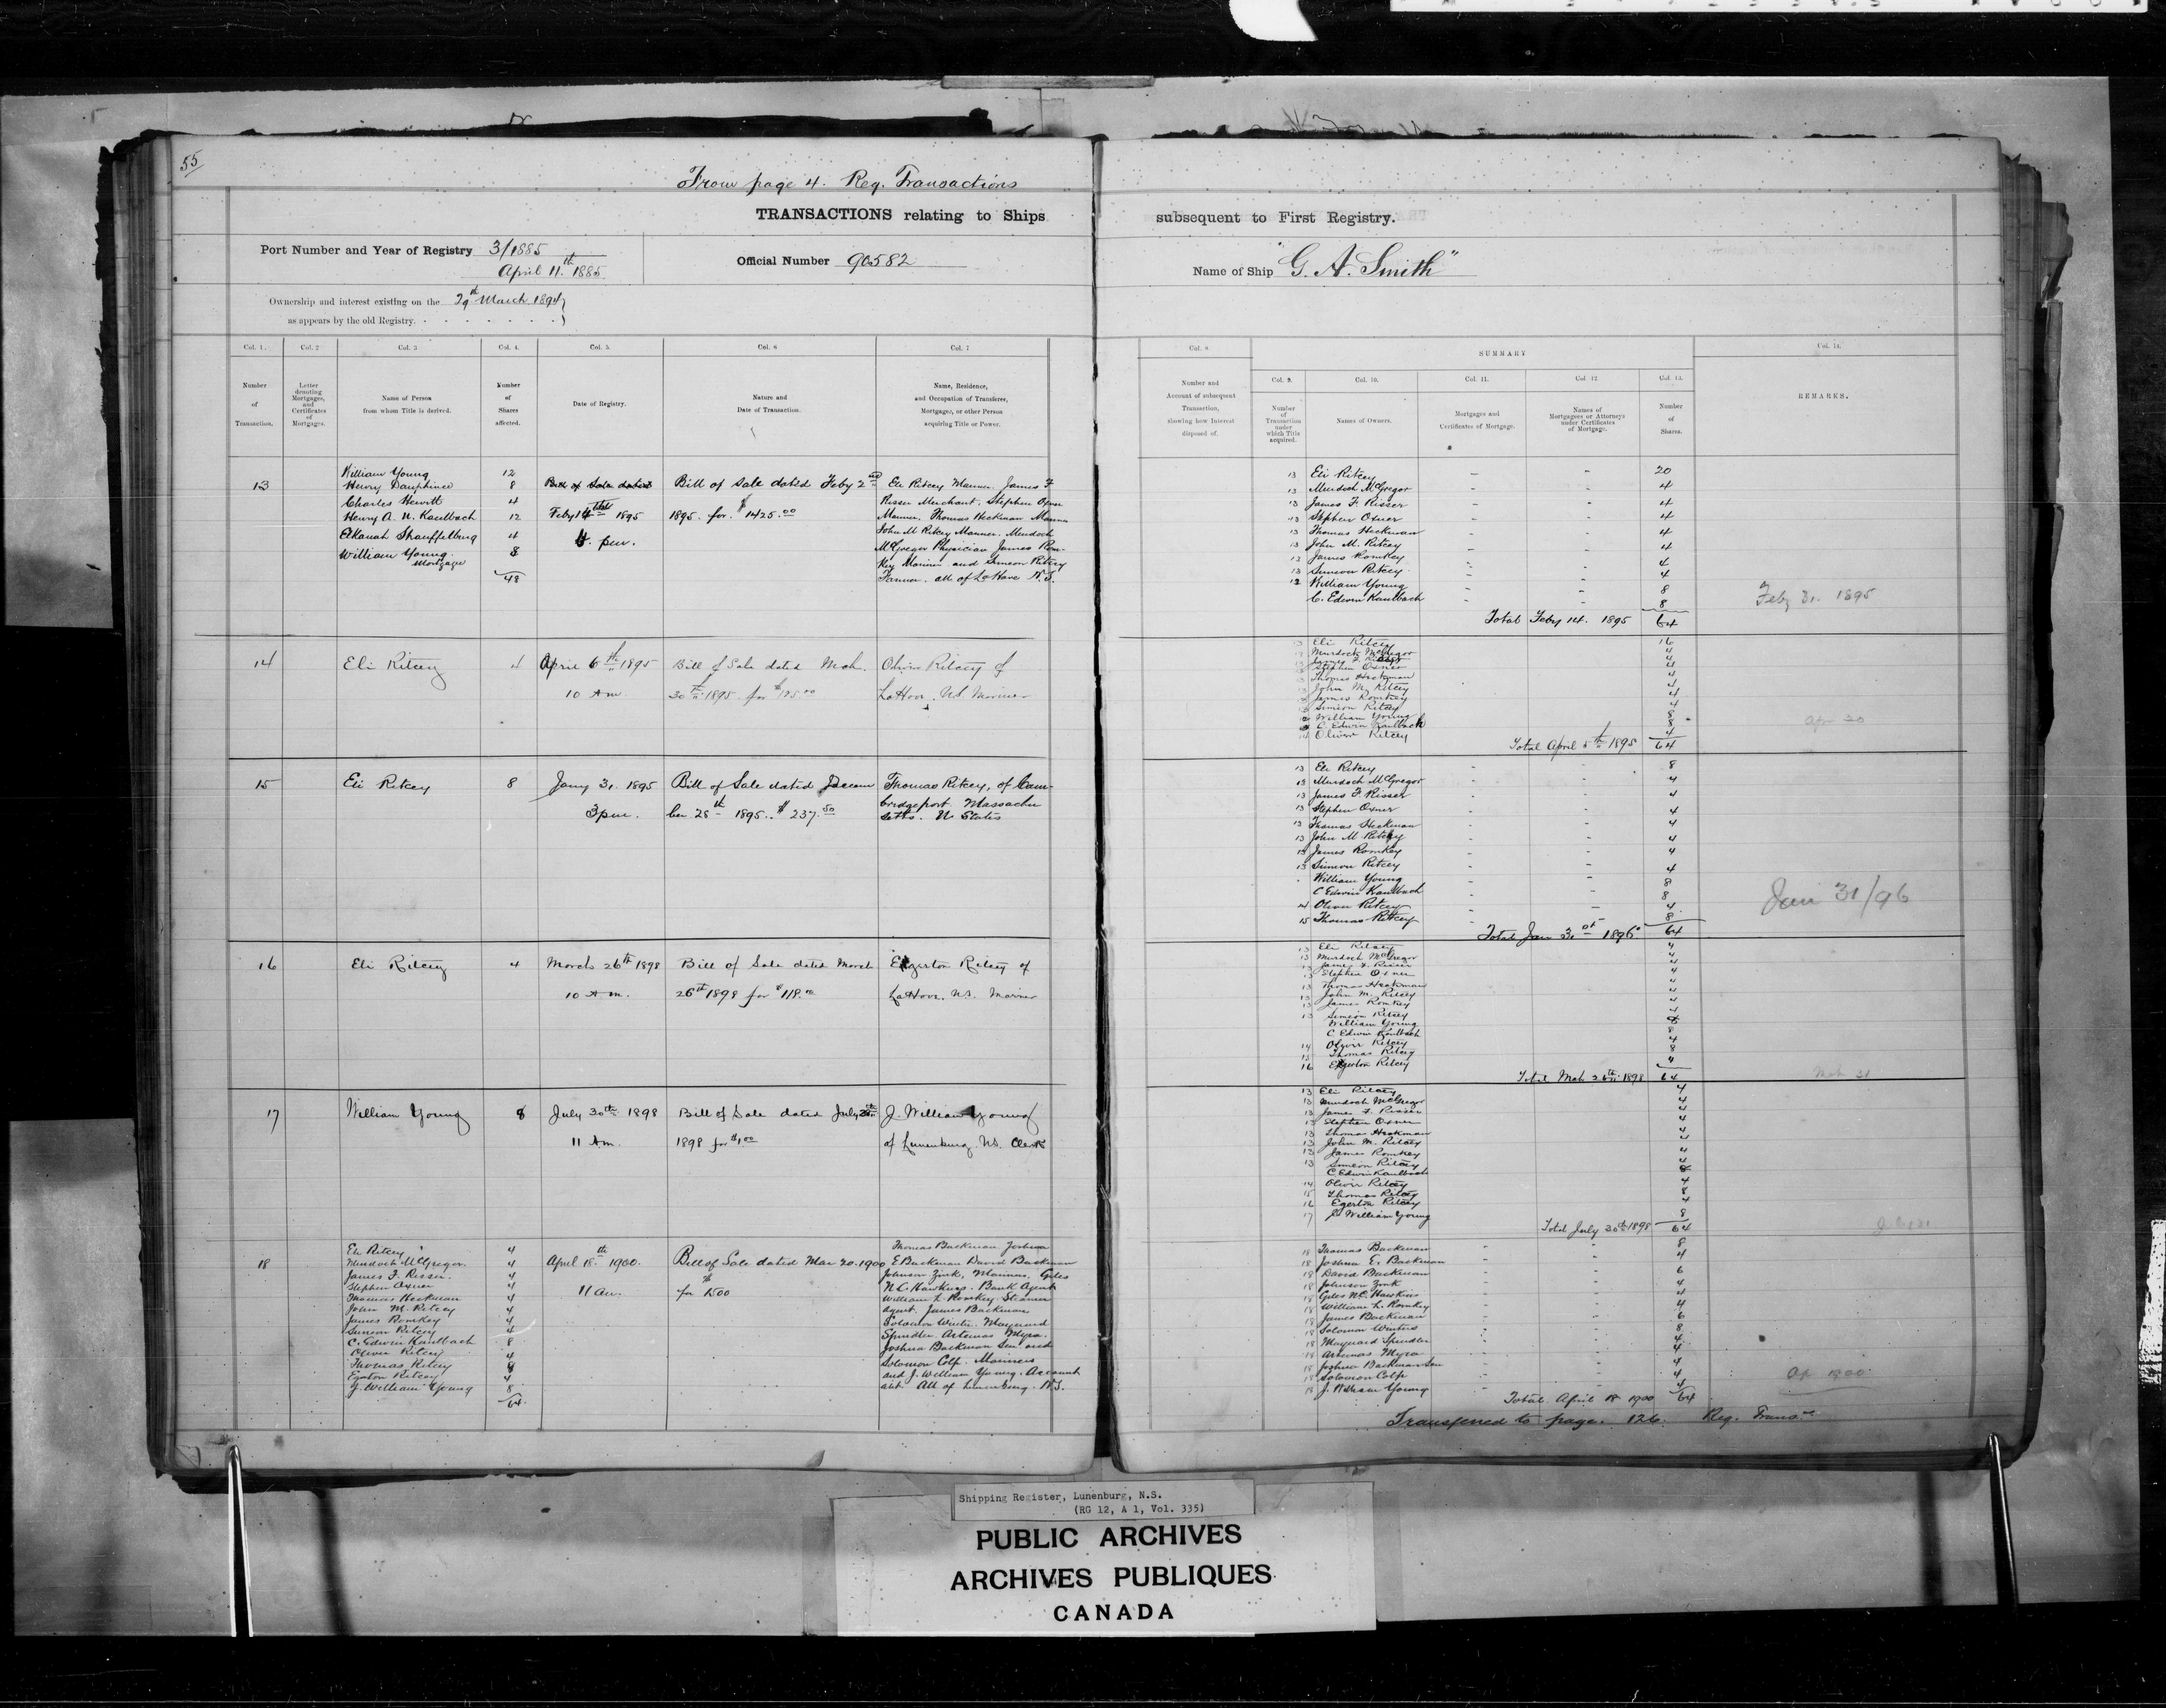 55
From page 4. Reg. Transactions
TRANSACTIONS relating to Ships
Port Number and Year of Registry 3/1885
April 11.th 1885
Official Number 90582
Ownership and interest existing on the 29th March 1894
as appears by the old Registry.
Col. 1. Col. 2 Col. 3 Col. 4. Col. 5. Col. 6 Col. 7
Number of Transaction.
Letter denoting Mortgages, and Certificates of Mortgages.
Name of Person from whom Title is derived.
Number of Shares affected.
Date of Registry.
Nature and Date of Transaction.
Name, Residence, and Occupation of Transferee, Mortgagee, or other Person acquiring Title or Power.
13
William Young 12
Henry Dauphinee 8
Charles Hewitt 4
Henry A. N. Kaulbach 12
Elkanah Shauffelburg 4
William Young. 8
Mortgage
48
Bill of Sale dated
Feby 14th 1895
4. pm.
Bill of Sale dated Feby 2nd
1895. for. $1425.00
Eli Ritcey Mariner. James F
Risser Merchant. Stephen Oxner
Mariner. Thomas Heckman Mariner
John M Ritcey Mariner. Murdoch
McGregor Physician James Rom-
key Mariner and Simeon Ritcey
Farmer. all of LaHave N.S.
14 Eli Ritcey 4 April 6th 1895 Bill of Sale dated Mch. Oliver Ritcey of
10 Am. 30th 1895 for $125.00 LaHave. NS Mariner
15 Eli Ritcey 8 Jany 31. 1895 Bill of Sale dated Decem Thomas Ritcey, of Cam-
3pm. ber 28th 1895. $237.50 bridgeport. Massachu
setts. U. States
16 Eli Ritcey 4 March 26th 1898 Bill of Sale dated March Egerton Ritcey of
10 Am. 26th 1898 for $118.00 LaHave. NS. Mariner
17 William Young 8 July 30th 1898 Bill of Sale dated July J. William Young
11 Am. 1898 for $1.00 of Lunenburg NS. Clerk
18
Eli Ritcey 4
Murdoch McGregor. 4
James F. Risser. 4
Stephen Oxner 4
Thomas Heckman 4
John M. Ritcey 4
James Romkey 4
Simeon Ritcey 4
C. Edwin Kaulbach 8
Oliver Ritcey 4
Thomas Ritcey 8
Egerton Ritcey 4
J. William Young 8
64
April 18th 1900.
11 am.
Bill of Sale dated Mar 20. 1900
for 1500
Thomas Backman Joshua
E Backman David Backman
Johnson Zink, Mariners. Giles
N.C. Hawkins. Bank Agent
William L. Romkey Steamer
Agent. James Backman
Solomon Winters. Maynard
Spindler. Artemas Myra.
Joshua Backman Senr and
Solomon Colp. Mariners
and J. William Young. Account
ant. All of Lunenburg. N.S.
subsequent to First Registry.
Name of Ship "G. A. Smith"
Col. 8.
Number and Account of subsequent Transaction, showing how Interest disposed of.
SUMMARY
Col. 9. Col. 10. Col. 11. Col. 12 Col. 13. Col. 14.
Number of Transaction under which Title acquired.
Names of Owners.
Mortgages and Certificates of Mortgage.
Names of Mortgagees or Attorneys under Certificates of Mortgage.
Number of Shares.
REMARKS.
13 Eli Ritcey - - 20
13 Murdoch McGregor - - 4
13 James F. Risser - - 4
13 Stephen Oxner - - 4
13 Thomas Heckman - - 4
13 John M. Ritcey - - 4
13 James Romkey - - 4
13 Simeon Ritcey - - 4
12 William Young - - 8
C. Edwin Kaulbach - - 8
Total Feby 14. 1895 64
Feby 31. 1895
13 Eli Ritcey 16
Murdoch McGregor 4
James F. Risser 4
Stephen Oxner 4
Thomas Heckman 4
John M. Ritcey 4
James Romkey 4
Simeon Ritcey 4
William Young 8
C Edwin Kaulbach 8
14 Oliver Ritcey 4
Total April 6th 1895 64
Apr 30
13 Eli Ritcey - - 8
13 Murdoch McGregor - - 4
13 James F. Risser - - 4
13 Stephen Oxner - - 4
13 Thomas Heckman - - 4
13 John M Ritcey - - 4
13 James Romkey - - 4
13 Simeon Ritcey - - 4
William Young - - 8
C Edwin Kaulbach - - 8
14 Oliver Ritcey - - 4
15 Thomas Ritcey - - 8
Total Jan 31st 1896 64
Jan 31/96
13 Eli Ritcey 4
13 Murdoch McGregor 4
13 James F. Risser 4
13 Stephen Oxner 4
13 Thomas Heckman 4
13 John M. Ritcey 4
13 James Romkey 4
13 Simeon Ritcey 4
William Young 8
C Edwin Kaulbach 8
14 Oliver Ritcey 4
15 Thomas Ritcey 8
16 Egerton Ritcey 4
Total Mch 26th 1898 64
Mch 31
13 Eli Ritcey 4
13 Murdoch McGregor 4
13 James F. Risser 4
13 Stephen Oxner 4
13 Thomas Heckman 4
13 John M. Ritcey 4
13 James Romkey 4
13 Simeon Ritcey 4
C Edwin Kaulbach 8
14 Oliver Ritcey 4
15 Thomas Ritcey 8
16 Egerton Ritcey 4
17 J. William Young 8
Total July 30th 1898 64
18 Thomas Backman - - 8
18 Joshua E. Backman - - 4
18 David Backman - - 6
18 Johnson Zink - - 4
18 Giles N.C. Hawkins - - 4
18 William L. Romkey - - 4
18 James Backman - - 6
18 Solomon Winters - - 8
18 Maynard Spindler - - 4
18 Artemas Myra - - 4
18 Joshua Backman Sen - - 4
18 Solomon Colp - - 4
18 J. William Young - - 4
Total April 18 1900 64
Ap 1900
Transferred to page. 126. Reg. Trans
Shipping Register, Lunenburg, N.S.
(RG 12, A 1, Vol. 335)
PUBLIC ARCHIVES
ARCHIVES PUBLIQUES
CANADA